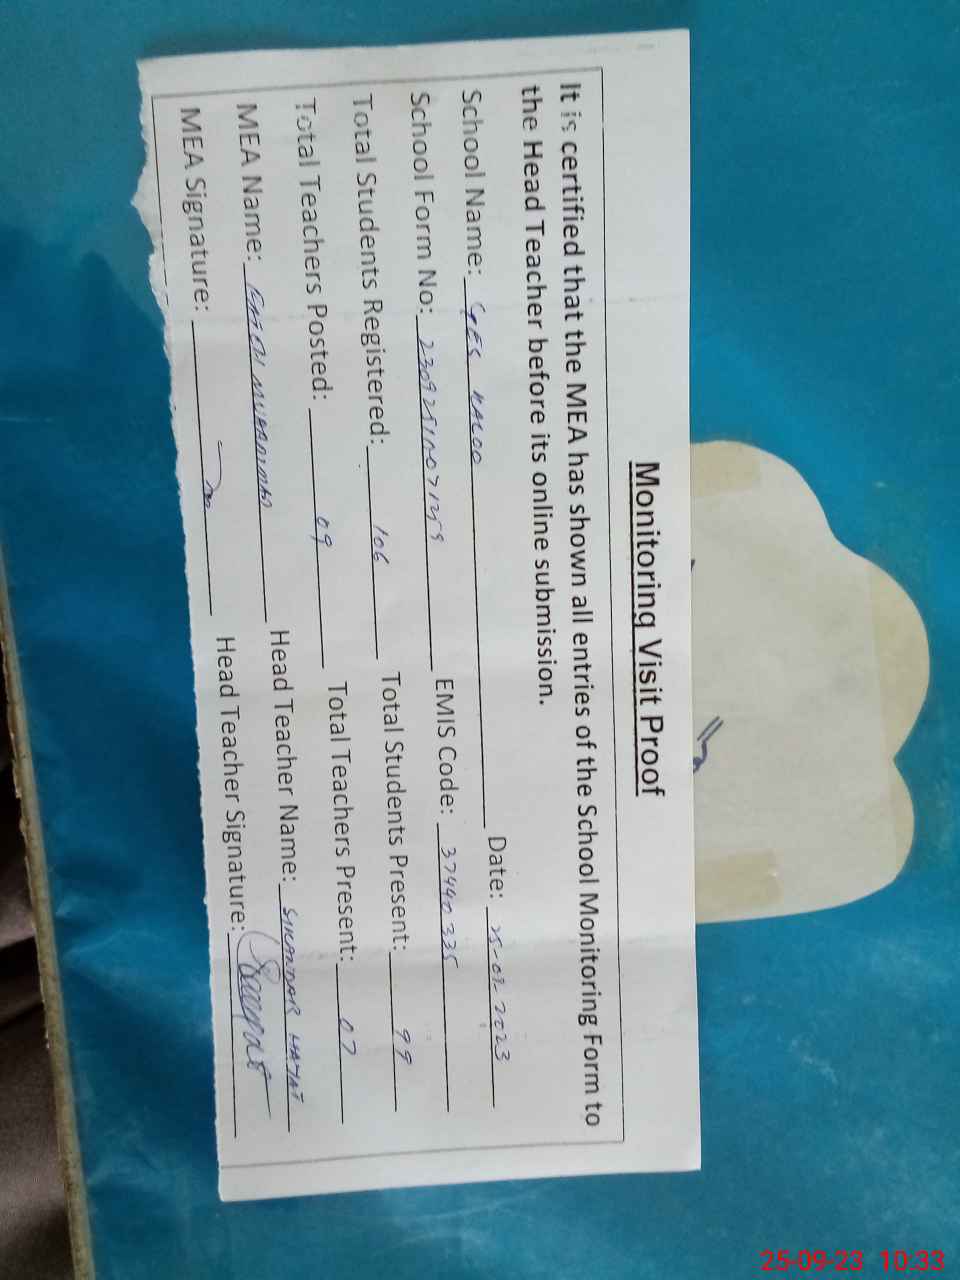 Monitoring Visit Proof
It is certified that the MEA has shown all entries of the School Monitoring Form to
the Head Teacher before its online submission.
School Name: GES KALOO Date: 25-09-2023
School Form No: 23092510071259 EMIS Code: 37440335
Total Students Registered: 106 Total Students Present: 99
Total Teachers Posted: 09 Total Teachers Present: 07
MEA Name: MUHAMMAD Head Teacher Name: SIKANDAR HAYAT
MEA Signature: Head Teacher Signature:
25-09-23 10:33